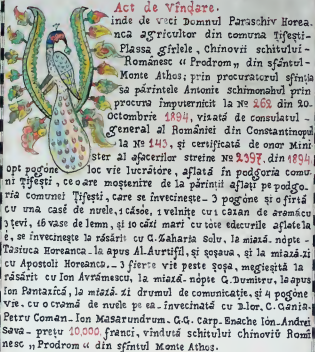 Act de Vindare.
inde de veci Domnul Paraschiv Horea-
nca agricultor din comuna Tifești-
Plassa girlele, Chinovii schitului-
Românesc „Prodrom" din sfântul-
Monte Athos; prin procuratorul sfinția
sa părintele Antonie schimonahul prin
procura împuternicit la No 262 din 20-
Octombrie 1894, vizată de consulatul-
general al României din Constantinopul
la No 143, și certificată de onor Mini
ster al afacerilor streine No 2397. din 1894,
opt pogóne loc vie lucrătore, aflată în podgoria comu-
ni Tifești, ce o are moștenire de la părintii aflați pe podgo-
ria comunei Tifești, care se învecinește- 3 pogóne și o firtă
cu una casĕ de nuele, 1 căsóe, 1 velnițe cu 1 cazan de aramăcu
3 țevi, 16 vase de lemn, și 10 căzi mari cu tóte edecurile aflate la
e, se învecinește la răsărit cu C. Zaharia Solu, la miază- nópte-
Tasica Horeanca- la apus Al. Aurtifil, și șoșaua, și la miază.zi
cu Apostoli Horeanca.- 3 fierte vie peste șosea, megieșită la
răsărit cu Ion Avrămescu, la miază- nópte G. Dumitru, la apus
Ion Pantazică, la miază. zi drumul de comunicație, și 4 pogóne
vie, cu o cramă de nuele pe ea- învecinată cu D.lor. C. Gania-
Petru Coman- Ion Masarundrum- G.G. Carp- Enache Ión-Andrei
Sava- prețu 10,000, franci, vinduță schitului chinoviŭ Romă
nesc „Prodrom" din sfântul Monte Athos.